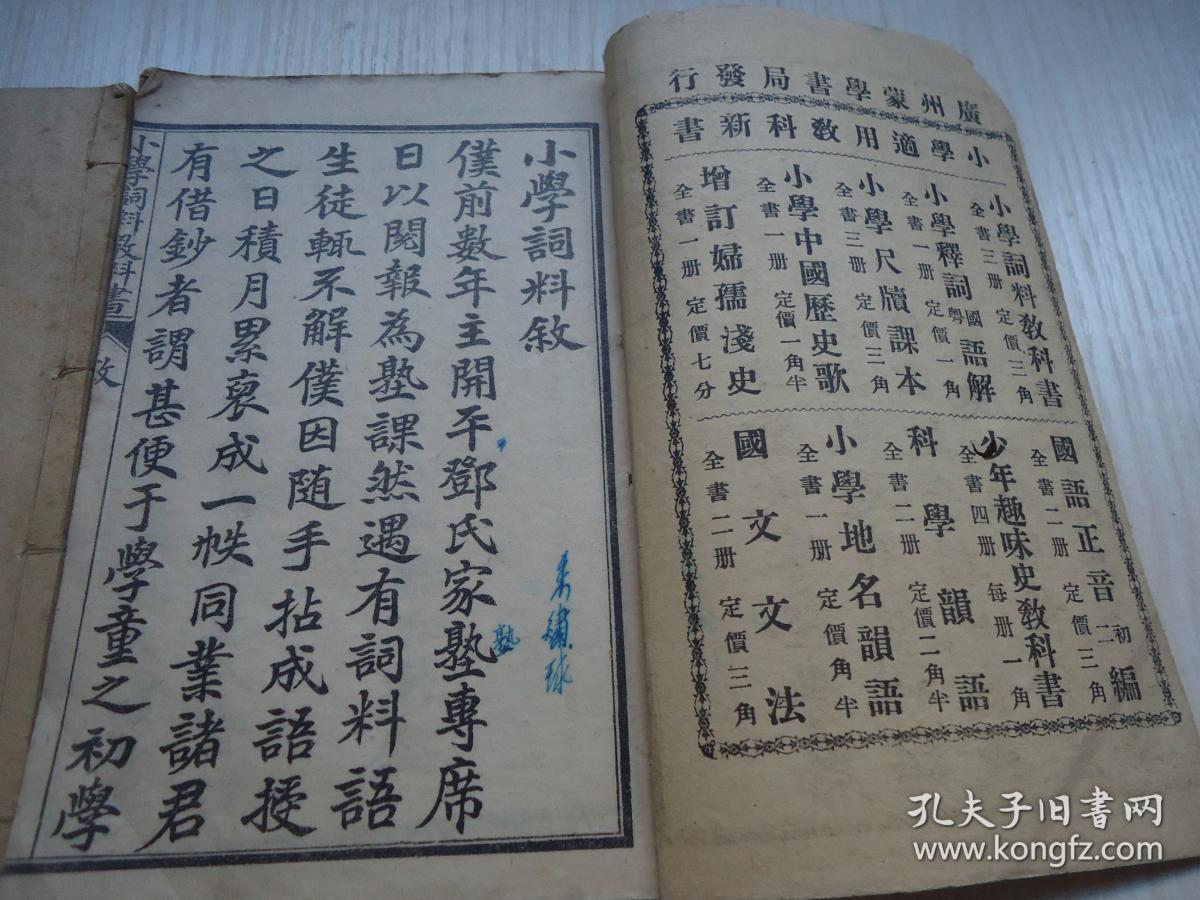 廣州蒙學書局發行
小學適用教科新書
小學詞料教科書
全書三册 定價三角
小學釋詞 粵國 語解
全書一册 定價一角
小學尺牘課本
全書三册 定價三角
小學中國歷史歌
全書一册 定價一角半
增訂婦孺淺史
全書一册 定價七分
國語正音 初二 編
全書二册 定價三角
少年趣味史教科書
全書四册 每册一角
科學韻語
全書二册 定價二角半
小學地名韻語
全書一册 定價角半
國文文法
全書二册 定價三角
小學詞料敘
僕前数年主開平鄧氏家塾專席
日以閱報為塾課然遇有詞料語
生徒輒不解僕因随手拈成語授
之日積月累裒成一帙同業諸君
有借鈔者謂甚便于學童之初學
小學詞料教科書 敘
塾
孔夫子旧书网
www.kongfz.com